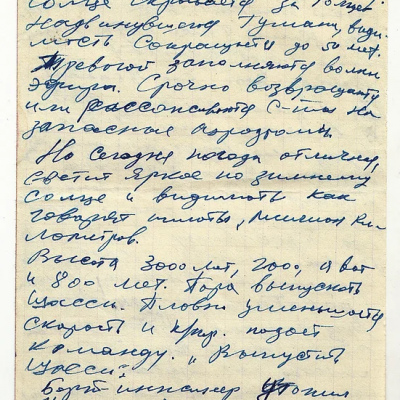 солнце скрывается за толщей
надвинувшегося тумана, види-
мость сокращается до 50 мет.
Тревогой заполняются волны
эфира. Срочно возвращаются
или рассаживаются с-ты на
запасные аэродромы.
Но сегодня погода отличная,
светит яркое по зимнему
солнце и видимость как
говорят пилоты, миллион ки-
лометров.
Высота 3000 мет, 2000, а вот
и 800 мет. Пора выпускать
шасси. Плавно уменьшается
скорость и подает
команду. „Выпустить
шасси"
Борт инженер